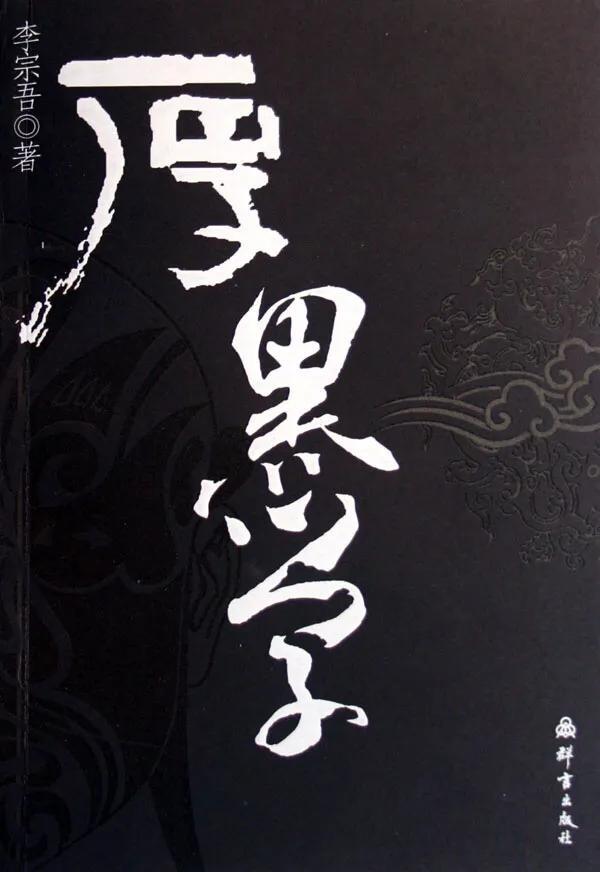 李宗吾◎著
厚黑学
群言出版社